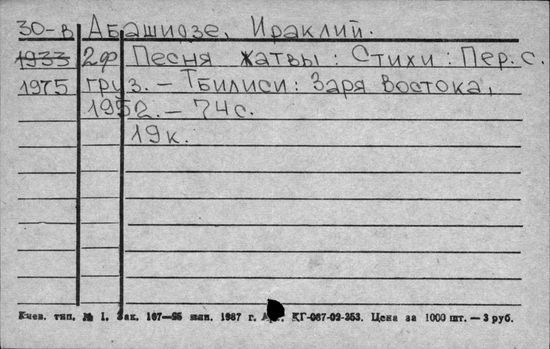 30-в Абашидзе, Ираклий.
1933 2ф Песня жатвы : Стихи : Пер. с.
1975 груз. – Тбилиси : Заря Востока,
1952. – 74 с.
19 к.
Киев. тип. № 1. Зак. 107—25 млн. 1987 г. КГ-067-02-353. Цена за 1000 шт. — 3 руб.